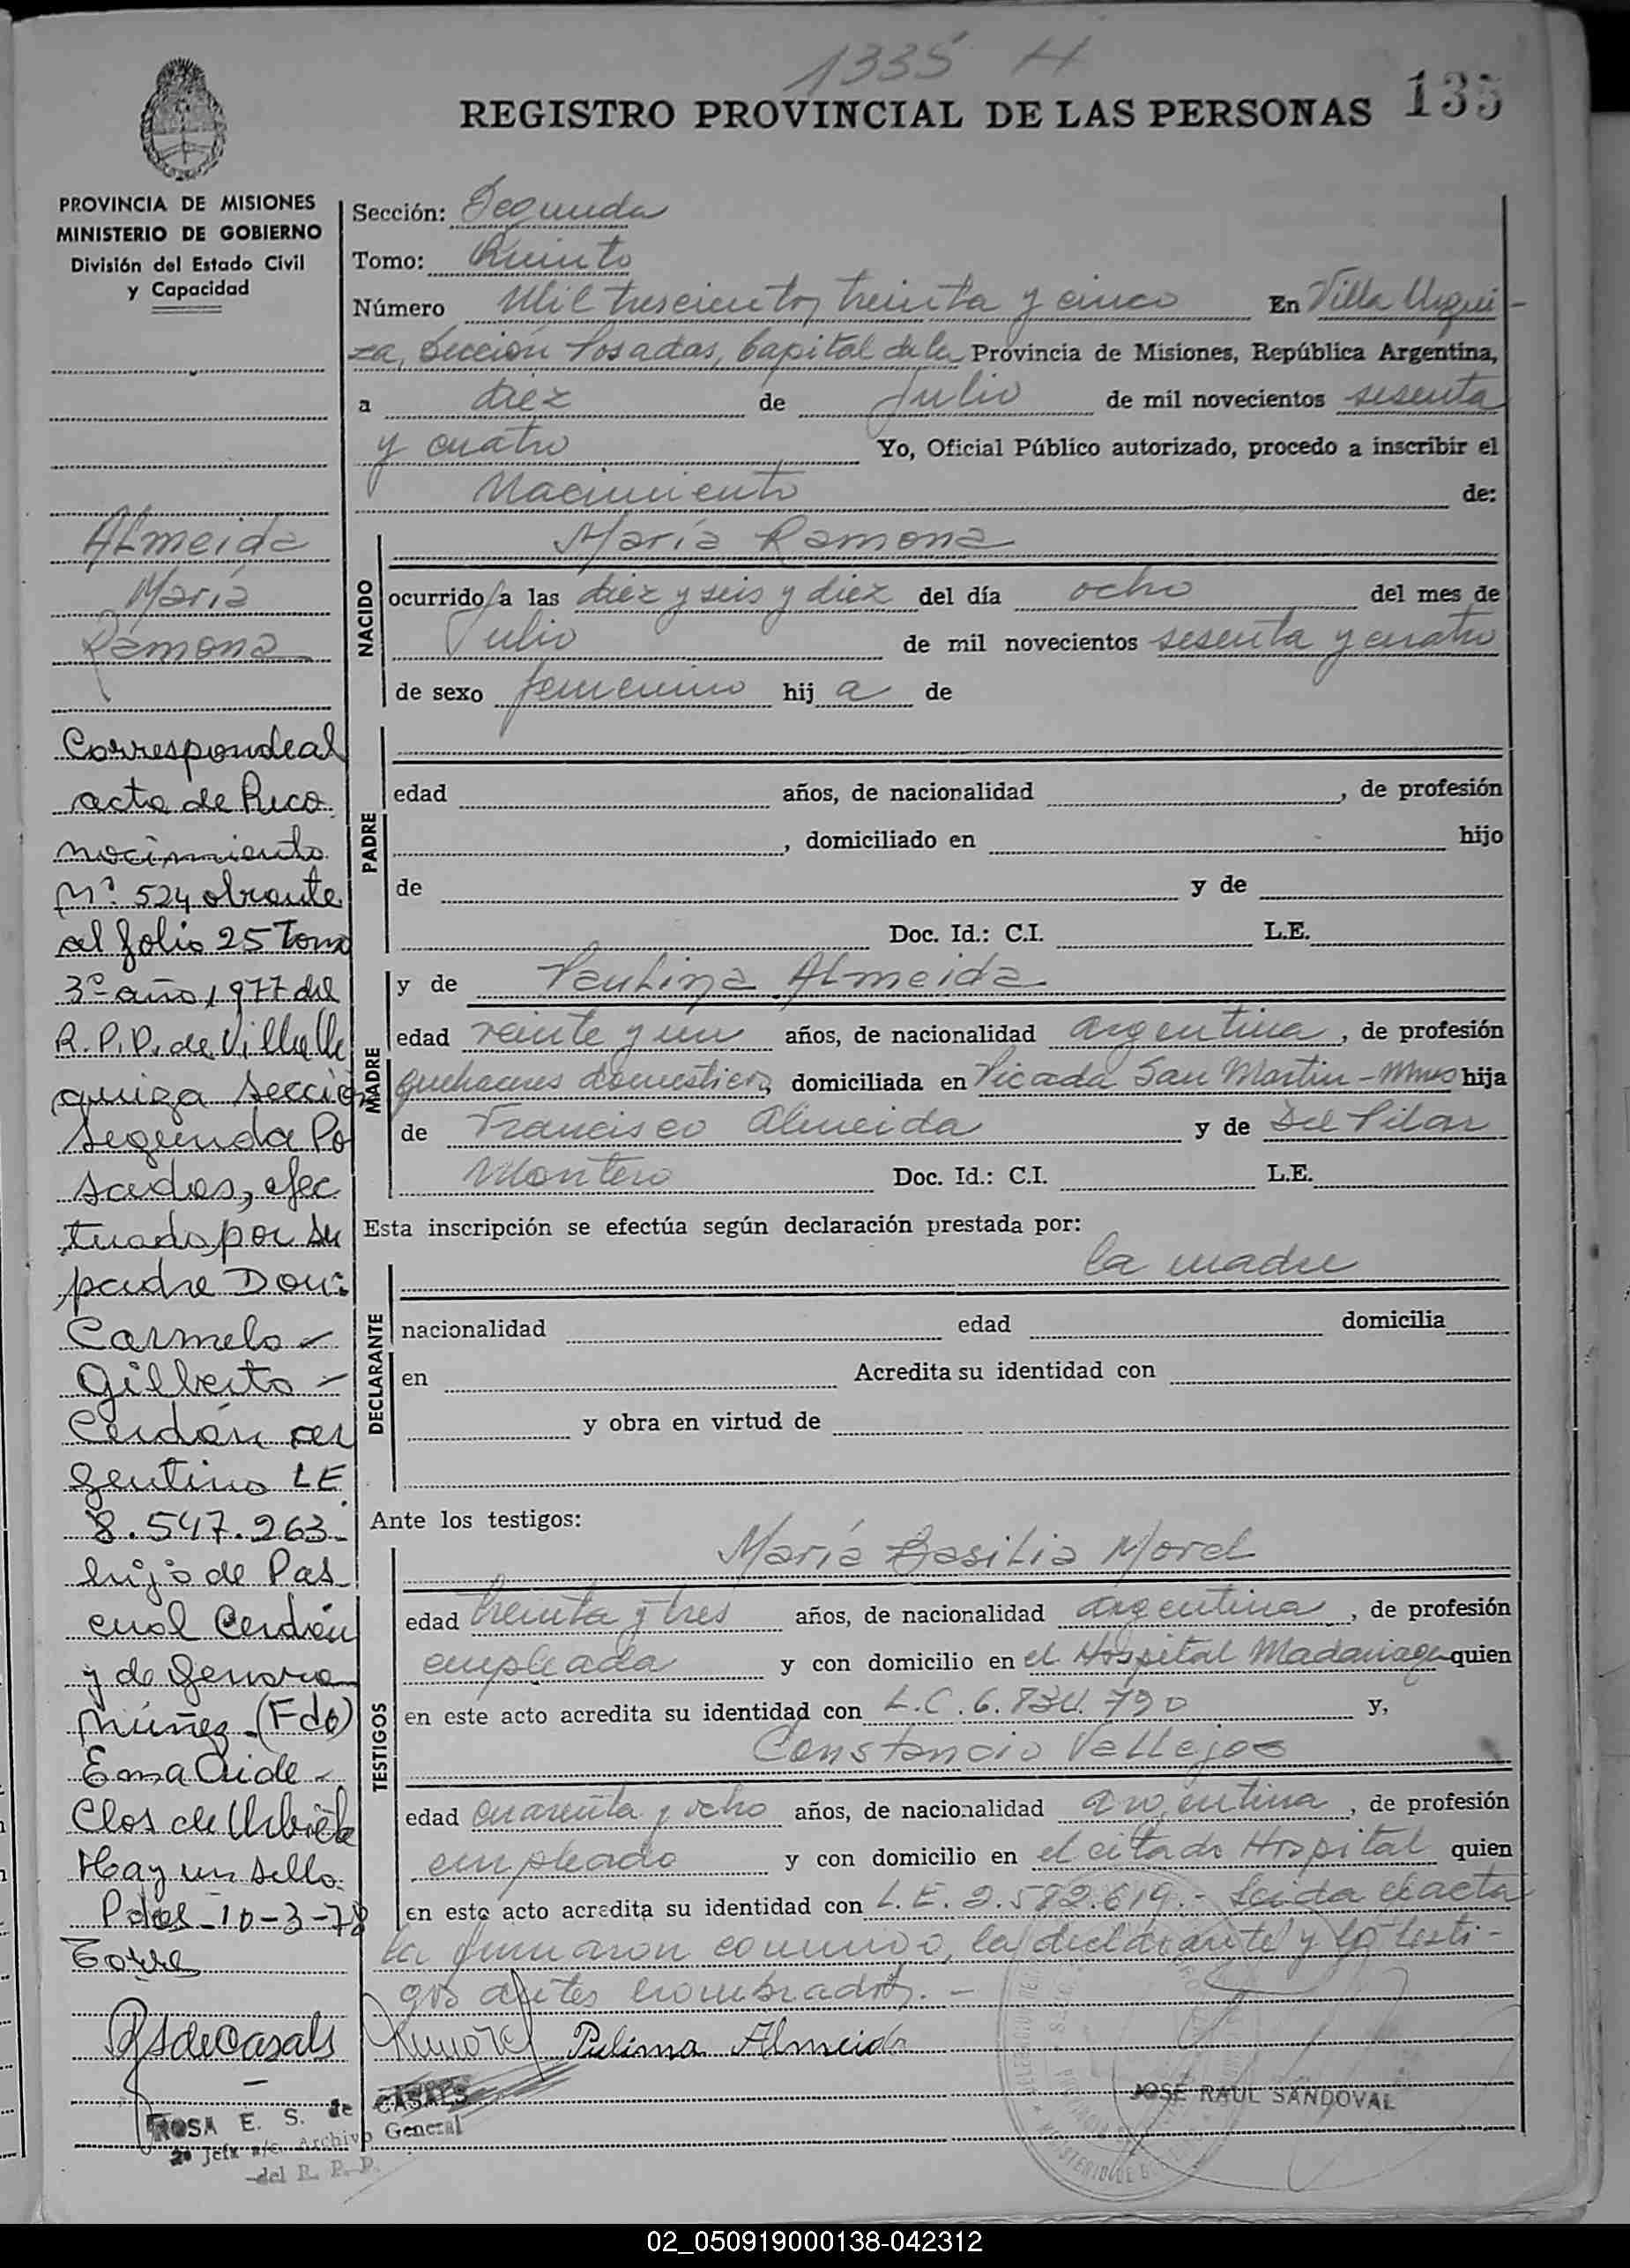 1335 H
REGISTRO PROVINCIAL DE LAS PERSONAS 135
PROVINCIA DE MISIONES
MINISTERIO DE GOBIERNO
División del Estado Civil
y Capacidad
Almeida
María
Ramona
Corresponde al
acta de Reco
nocimiento
Nº 524 obrante
al folio 25 Tomo
3º año 1977 del
R.P.P. de Villa Ur
quiza Sección
Segunda Po
sadas, efec
tuado por su
padre Don:
Carmelo -
Gilberto -
Cerdán ar
gentino LE
8.547.263
hijo de Pas
cual Cerdán
y de Genara
Núñez (Fdo)
Ema Aide -
Clos de
Hay un sello.
Pdas-10-3-78
Torre
RSdeCasals
ROSA E. S. de CASALS
2º Jefe a/c. Archivo General
del R. P. P.
Sección: Segunda
Tomo: Quinto
Número Mil trescientos treinta y cinco En Villa Urqui-
za, Sección Posadas, Capital de la Provincia de Misiones, República Argentina,
a diez de Julio de mil novecientos sesenta
y cuatro Yo, Oficial Público autorizado, procedo a inscribir el
Nacimiento de:
NACIDO
María Ramona
ocurrido a las diez y seis y diez del día ocho del mes de
Julio de mil novecientos sesenta y cuatro
de sexo femenino hij a de
PADRE
edad años, de nacionalidad , de profesión
, domiciliado en hijo
de y de
Doc. Id.: C.I. L.E.
MADRE
y de Paulina Almeida
edad veinte y un años, de nacionalidad argentina, de profesión
quehaceres domésticos, domiciliada en Picada San Martin - Mnes hija
de Francisco Almeida y de Del Pilar
Montero Doc. Id.: C.I. L.E.
Esta inscripción se efectúa según declaración prestada por:
la madre
DECLARANTE
nacionalidad edad domicilia
en Acredita su identidad con
y obra en virtud de
Ante los testigos:
TESTIGOS
María Basilia Morel
edad treinta y tres años, de nacionalidad argentina, de profesión
empleada y con domicilio en el Hospital Madariaga quien
en este acto acredita su identidad con L.C. 6.834.790 y,
Constancio Vallejos
edad cuarenta y ocho años, de nacionalidad argentina, de profesión
empleado y con domicilio en el citado Hospital quien
en este acto acredita su identidad con L.E. 2.582.619.- Leida el acta
la firmaron conmigo, la declarante y los testi-
gos antes nombrados.-
Pulima Almeida
JOSÉ RAUL SANDOVAL
02_050919000138-042312